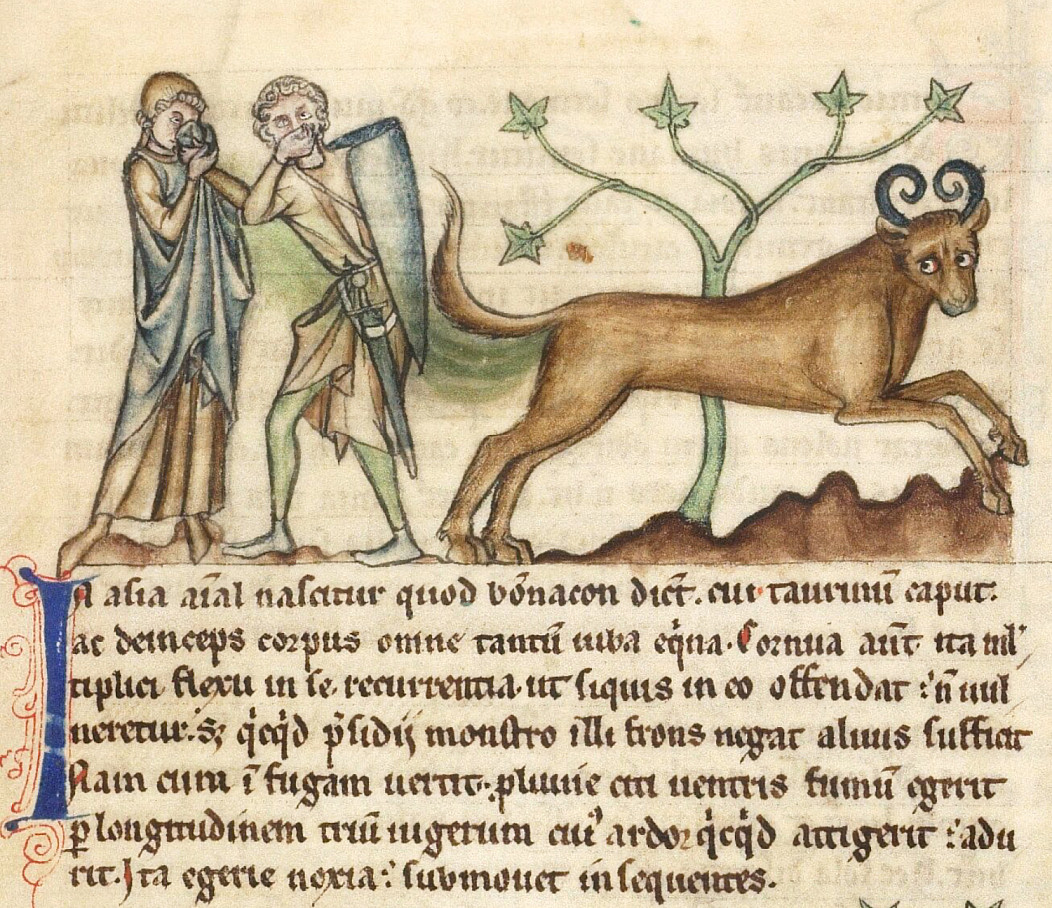 In asia aīal nascitur quod bōnacon dicr̄. cui taurinū caput.
ac deinceps corpus omne tantū iuba eq̇na. Cornua aūt ita ml̓
tiplici flexu in se recurrentia. ut siquis in eo offendat : n̄ uul
neretur. Sꝫ q̇cq̇d p̄sidij monstro illi frons negat aluus sufficit
Nam cum ī fugam uertit. citi uentris fumū egerit
ꝑ longitudinem triū iugerum cui᾽ ardor q̇cq̇d attigerit : adu
rit. Ita egerie noxia : submouet insequentes.